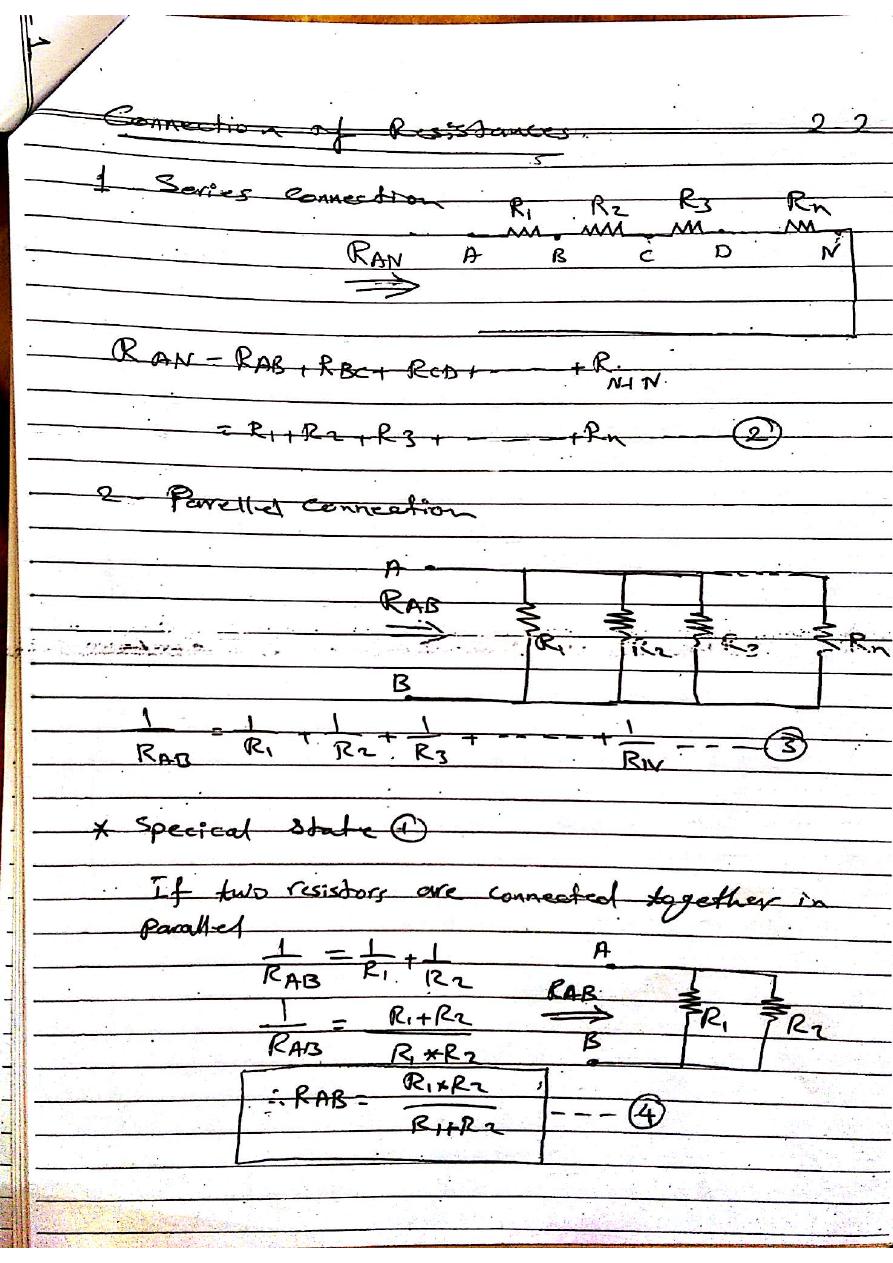 Connection of Resistances 2-2
1 Series connection
R1 R2 R3 Rn
A B C D N
RAN
RAN = RAB + RBC + RCD + ------ + RN-1N
= R1 + R2 + R3 + ------ + Rn ------ (2)
2- Parellel connection
A
RAB
R1 R2 R3 Rn
B
1/RAB = 1/R1 + 1/R2 + 1/R3 + ------ + 1/RN ---- (3)
* Specical state (1)
If two resistors are connected together in
parallel
1/RAB = 1/R1 + 1/R2
A
RAB
R1 R2
1/RAB = R1+R2 / R1*R2
B
∴ RAB = R1*R2 / R1+R2 ---- (4)